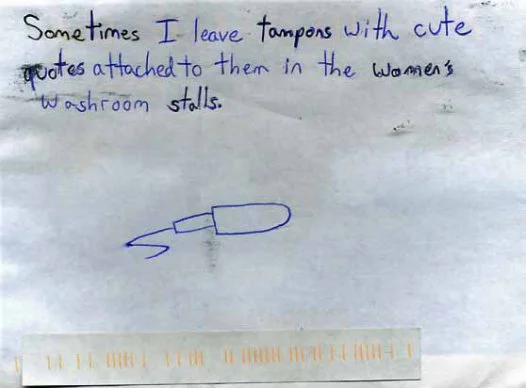 Sometimes I leave tampons with cute
quotes attached to them in the women's
washroom stalls.